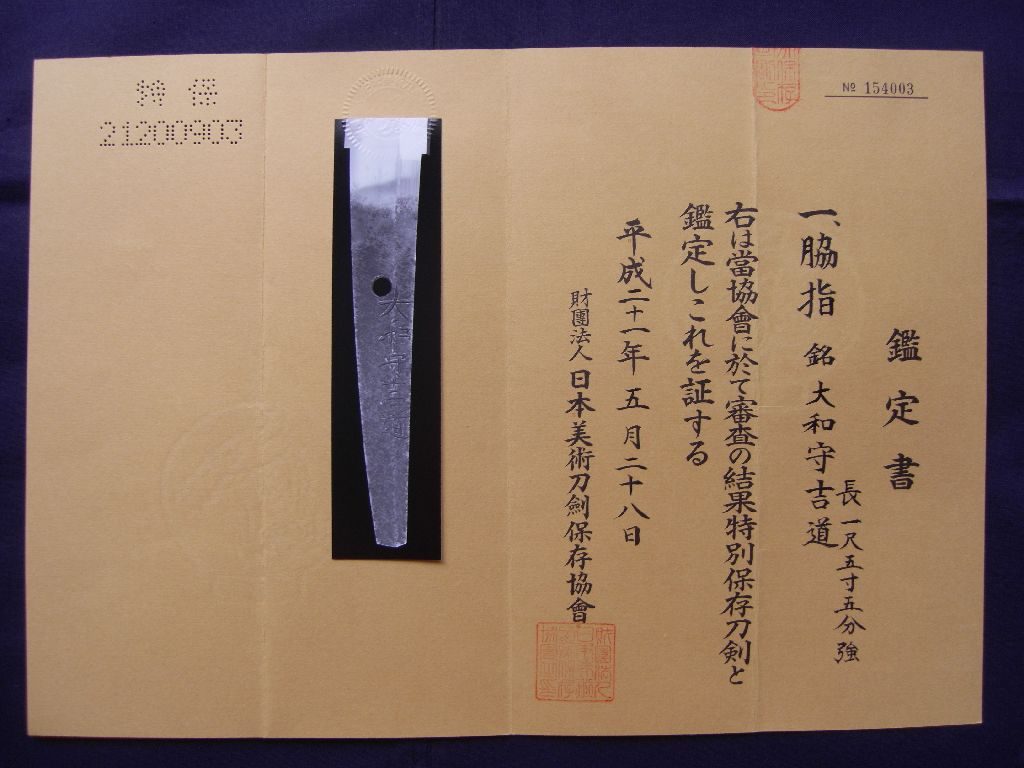 № 154003
鑑定書
一、脇指 銘 大和守吉道
長一尺五寸五分強
右は當協會に於て審査の結果特別保存刀剣と
鑑定しこれを証する
平成二十一年五月二十八日
財團法人日本美術刀劍保存協會
特保
21200903
大和守吉道